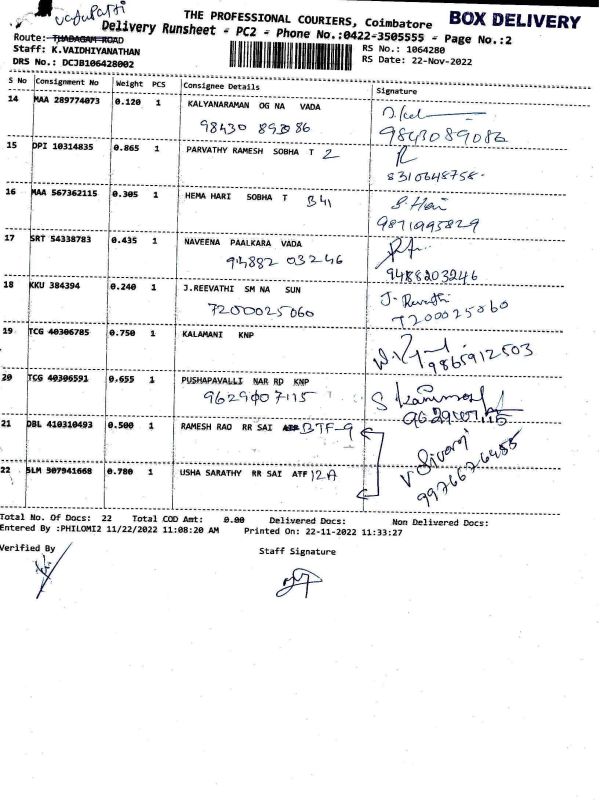 THE PROFESSIONAL COURIERS, Coimbatore BOX DELIVERY
Delivery Runsheet - PC2 - Phone No.:0422-3505555 - Page No.:2
Route: THADAGAM ROAD
Staff: K.VAIDHIYANATHAN RS No.: 1064280
DRS No.: DCJB106428002 RS Date: 22-Nov-2022
S No Consignment No Weight PCS Consignee Details Signature
14 MAA 289774073 0.120 1 KALYANARAMAN OG NA VADA
98430 89086 9843089086
15 DPI 10314835 0.865 1 PARVATHY RAMESH SOBHA T 2
8310648758-
16 MAA 567362115 0.305 1 HEMA HARI SOBHA T B41 S. Hari
9871995829
17 SRT 54338783 0.435 1 NAVEENA PAALKARA VADA
94882 03246 9488203246
18 KKU 384394 0.240 1 J.REEVATHI SM NA SUN J. Revathi
7200025060 7200025060
19 TCG 40306785 0.750 1 KALAMANI KNP
9865912503
20 TCG 40306591 0.655 1 PUSHAPAVALLI NAR RD KNP
9629007115 9629007115
21 DBL 410310493 0.500 1 RAMESH RAO RR SAI BTF-9
V Sivaraj
9976626455
22 SLM 307941668 0.780 1 USHA SARATHY RR SAI ATF 12A
Total No. Of Docs: 22 Total COD Amt: 0.00 Delivered Docs: Non Delivered Docs:
Entered By :PHILOMI2 11/22/2022 11:08:20 AM Printed On: 22-11-2022 11:33:27
Verified By Staff Signature